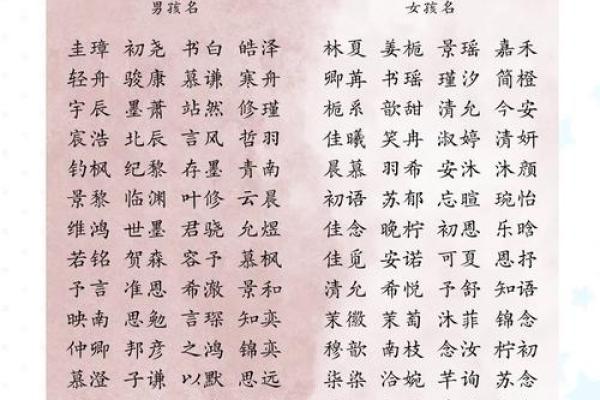 男孩名
圭璋 初尧 书白 皓泽
轻舟 骏康 慕谦 寒舟
宇辰 墨萧 站然 修瑾
宸浩 北辰 言风 哲羽
钓枫 纪黎 存墨 青南
景黎 临渊 叶修 云晨
维鸿 世墨 君骁 允煜
若铭 贺森 容予 慕枫
予言 准恩 希澈 景和
映南 思勉 言琛 知奕
仲卿 邦彦 之鸿 锦奕
慕澄 子谦 以默 思远
女孩名
林夏 姜栀 景瑶 嘉禾
卿苒 书瑶 瑾汐 简橙
栀系 歆甜 清允 今安
佳曦 笑冉 淑婷 清妍
晨慕 羽希 安沐 沐颜
初语 苏郁 忘暄 琬怡
佳念 晚柠 初恩 乐晗
佳觅 安诺 可夏 恩抒
清允 希悦 予舒 知语
茉徽 茉萄 沐菲 锦念
穆歆 南枝 念汝 柠初
柒染 洽婉 芊询 苏念